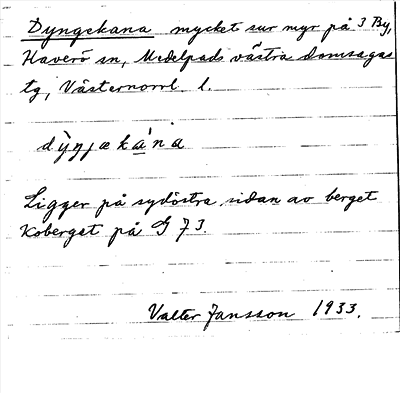 Dyngekana mycket sur myr på J By,
Haverö sn, Medelpads västra domsagas
tg, Västernorrl. l.
dỳŋʒækána
Ligger på sydöstra sidan av berget
Koberget på G 73.
Valter Jansson 1933.